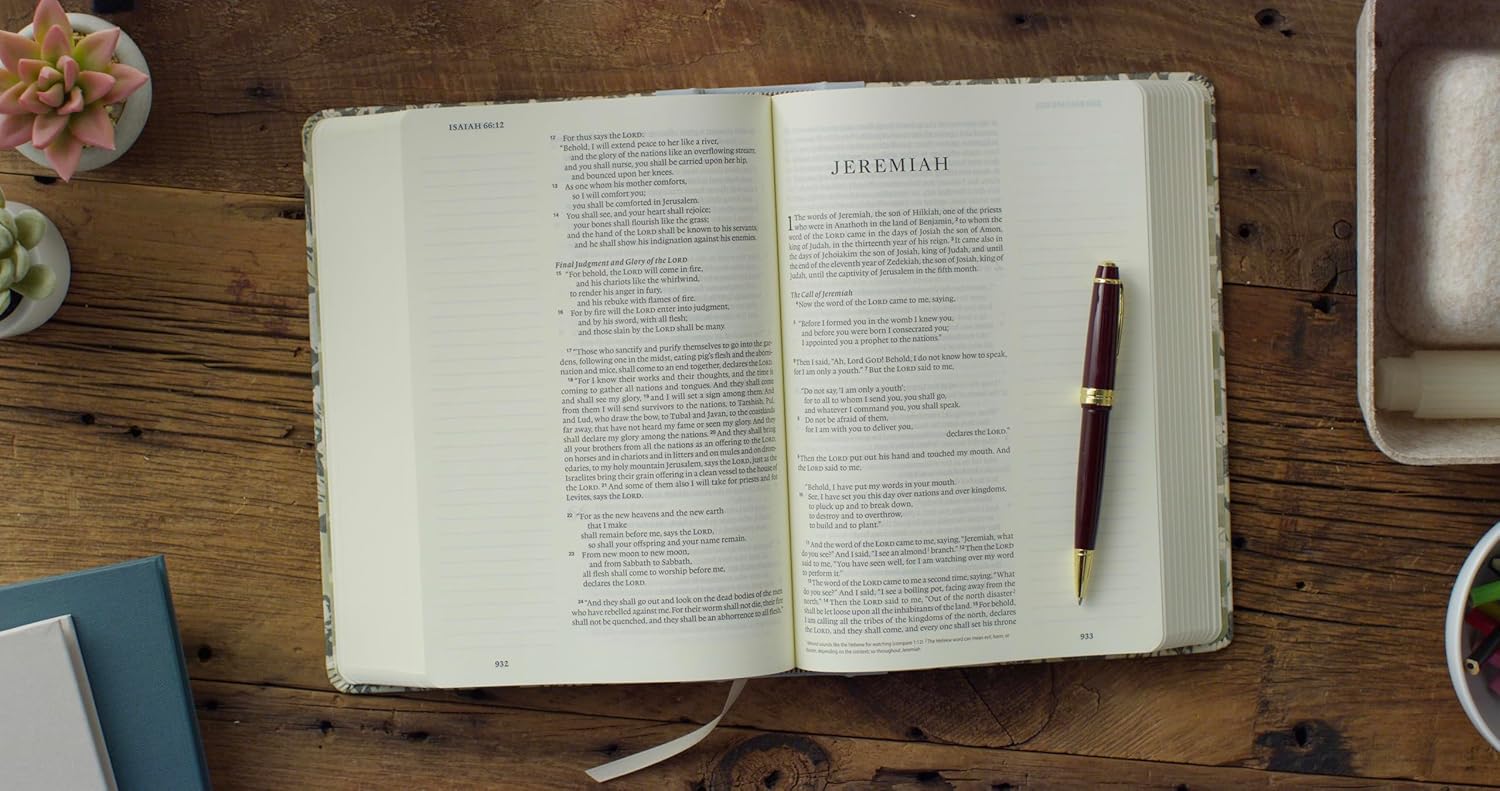 ISAIAH 66:12
12 For thus says the LORD:
"Behold, I will extend peace to her like a river,
and the glory of the nations like an overflowing stream;
and you shall nurse, you shall be carried upon her hip,
and bounced upon her knees.
13 As one whom his mother comforts,
so I will comfort you;
you shall be comforted in Jerusalem.
14 You shall see, and your heart shall rejoice;
your bones shall flourish like the grass;
and the hand of the LORD shall be known to his servants,
and he shall show his indignation against his enemies.
Final Judgment and Glory of the LORD
15 "For behold, the LORD will come in fire,
and his chariots like the whirlwind,
to render his anger in fury,
and his rebuke with flames of fire.
16 For by fire will the LORD enter into judgment,
and by his sword, with all flesh;
and those slain by the LORD shall be many.
17 "Those who sanctify and purify themselves to go into the gar-
dens, following one in the midst, eating pig's flesh and the abomi-
nation and mice, shall come to an end together, declares the LORD.
18 "For I know their works and their thoughts, and the time is
coming to gather all nations and tongues. And they shall come
and shall see my glory, 19 and I will set a sign among them. And
from them I will send survivors to the nations, to Tarshish, Pul,
and Lud, who draw the bow, to Tubal and Javan, to the coastlands
far away, that have not heard my fame or seen my glory. And they
shall declare my glory among the nations. 20 And they shall bring
all your brothers from all the nations as an offering to the LORD,
on horses and in chariots and in litters and on mules and on drom-
edaries, to my holy mountain Jerusalem, says the LORD, just as the
Israelites bring their grain offering in a clean vessel to the house of
the LORD. 21 And some of them also I will take for priests and for
Levites, says the LORD.
22 "For as the new heavens and the new earth
that I make
shall remain before me, says the LORD,
so shall your offspring and your name remain.
23 From new moon to new moon,
and from Sabbath to Sabbath,
all flesh shall come to worship before me,
declares the LORD.
24 "And they shall go out and look on the dead bodies of the men
who have rebelled against me. For their worm shall not die, their fire
shall not be quenched, and they shall be an abhorrence to all flesh."
932
JEREMIAH
1 The words of Jeremiah, the son of Hilkiah, one of the priests
who were in Anathoth in the land of Benjamin, 2 to whom the
word of the LORD came in the days of Josiah the son of Amon,
king of Judah, in the thirteenth year of his reign. 3 It came also in
the days of Jehoiakim the son of Josiah, king of Judah, and until
the end of the eleventh year of Zedekiah, the son of Josiah, king of
Judah, until the captivity of Jerusalem in the fifth month.
The Call of Jeremiah
4 Now the word of the LORD came to me, saying,
5 "Before I formed you in the womb I knew you,
and before you were born I consecrated you;
I appointed you a prophet to the nations."
6 Then I said, "Ah, Lord GOD! Behold, I do not know how to speak,
for I am only a youth." 7 But the LORD said to me,
"Do not say, 'I am only a youth';
for to all to whom I send you, you shall go,
and whatever I command you, you shall speak.
8 Do not be afraid of them,
for I am with you to deliver you,
declares the LORD."
9 Then the LORD put out his hand and touched my mouth. And
the LORD said to me,
"Behold, I have put my words in your mouth.
10 See, I have set you this day over nations and over kingdoms,
to pluck up and to break down,
to destroy and to overthrow,
to build and to plant."
11 And the word of the LORD came to me, saying, "Jeremiah, what
do you see?" And I said, "I see an almond1 branch." 12 Then the LORD
said to me, "You have seen well, for I am watching over my word
to perform it."
13 The word of the LORD came to me a second time, saying, "What
do you see?" And I said, "I see a boiling pot, facing away from the
north." 14 Then the LORD said to me, "Out of the north disaster2
shall be let loose upon all the inhabitants of the land. 15 For behold,
I am calling all the tribes of the kingdoms of the north, declares
the LORD, and they shall come, and every one shall set his throne
1 Almond sounds like the Hebrew for watching (compare 1:12) 2 The Hebrew word can mean evil, harm, or
disaster, depending on the context; so throughout Jeremiah
933